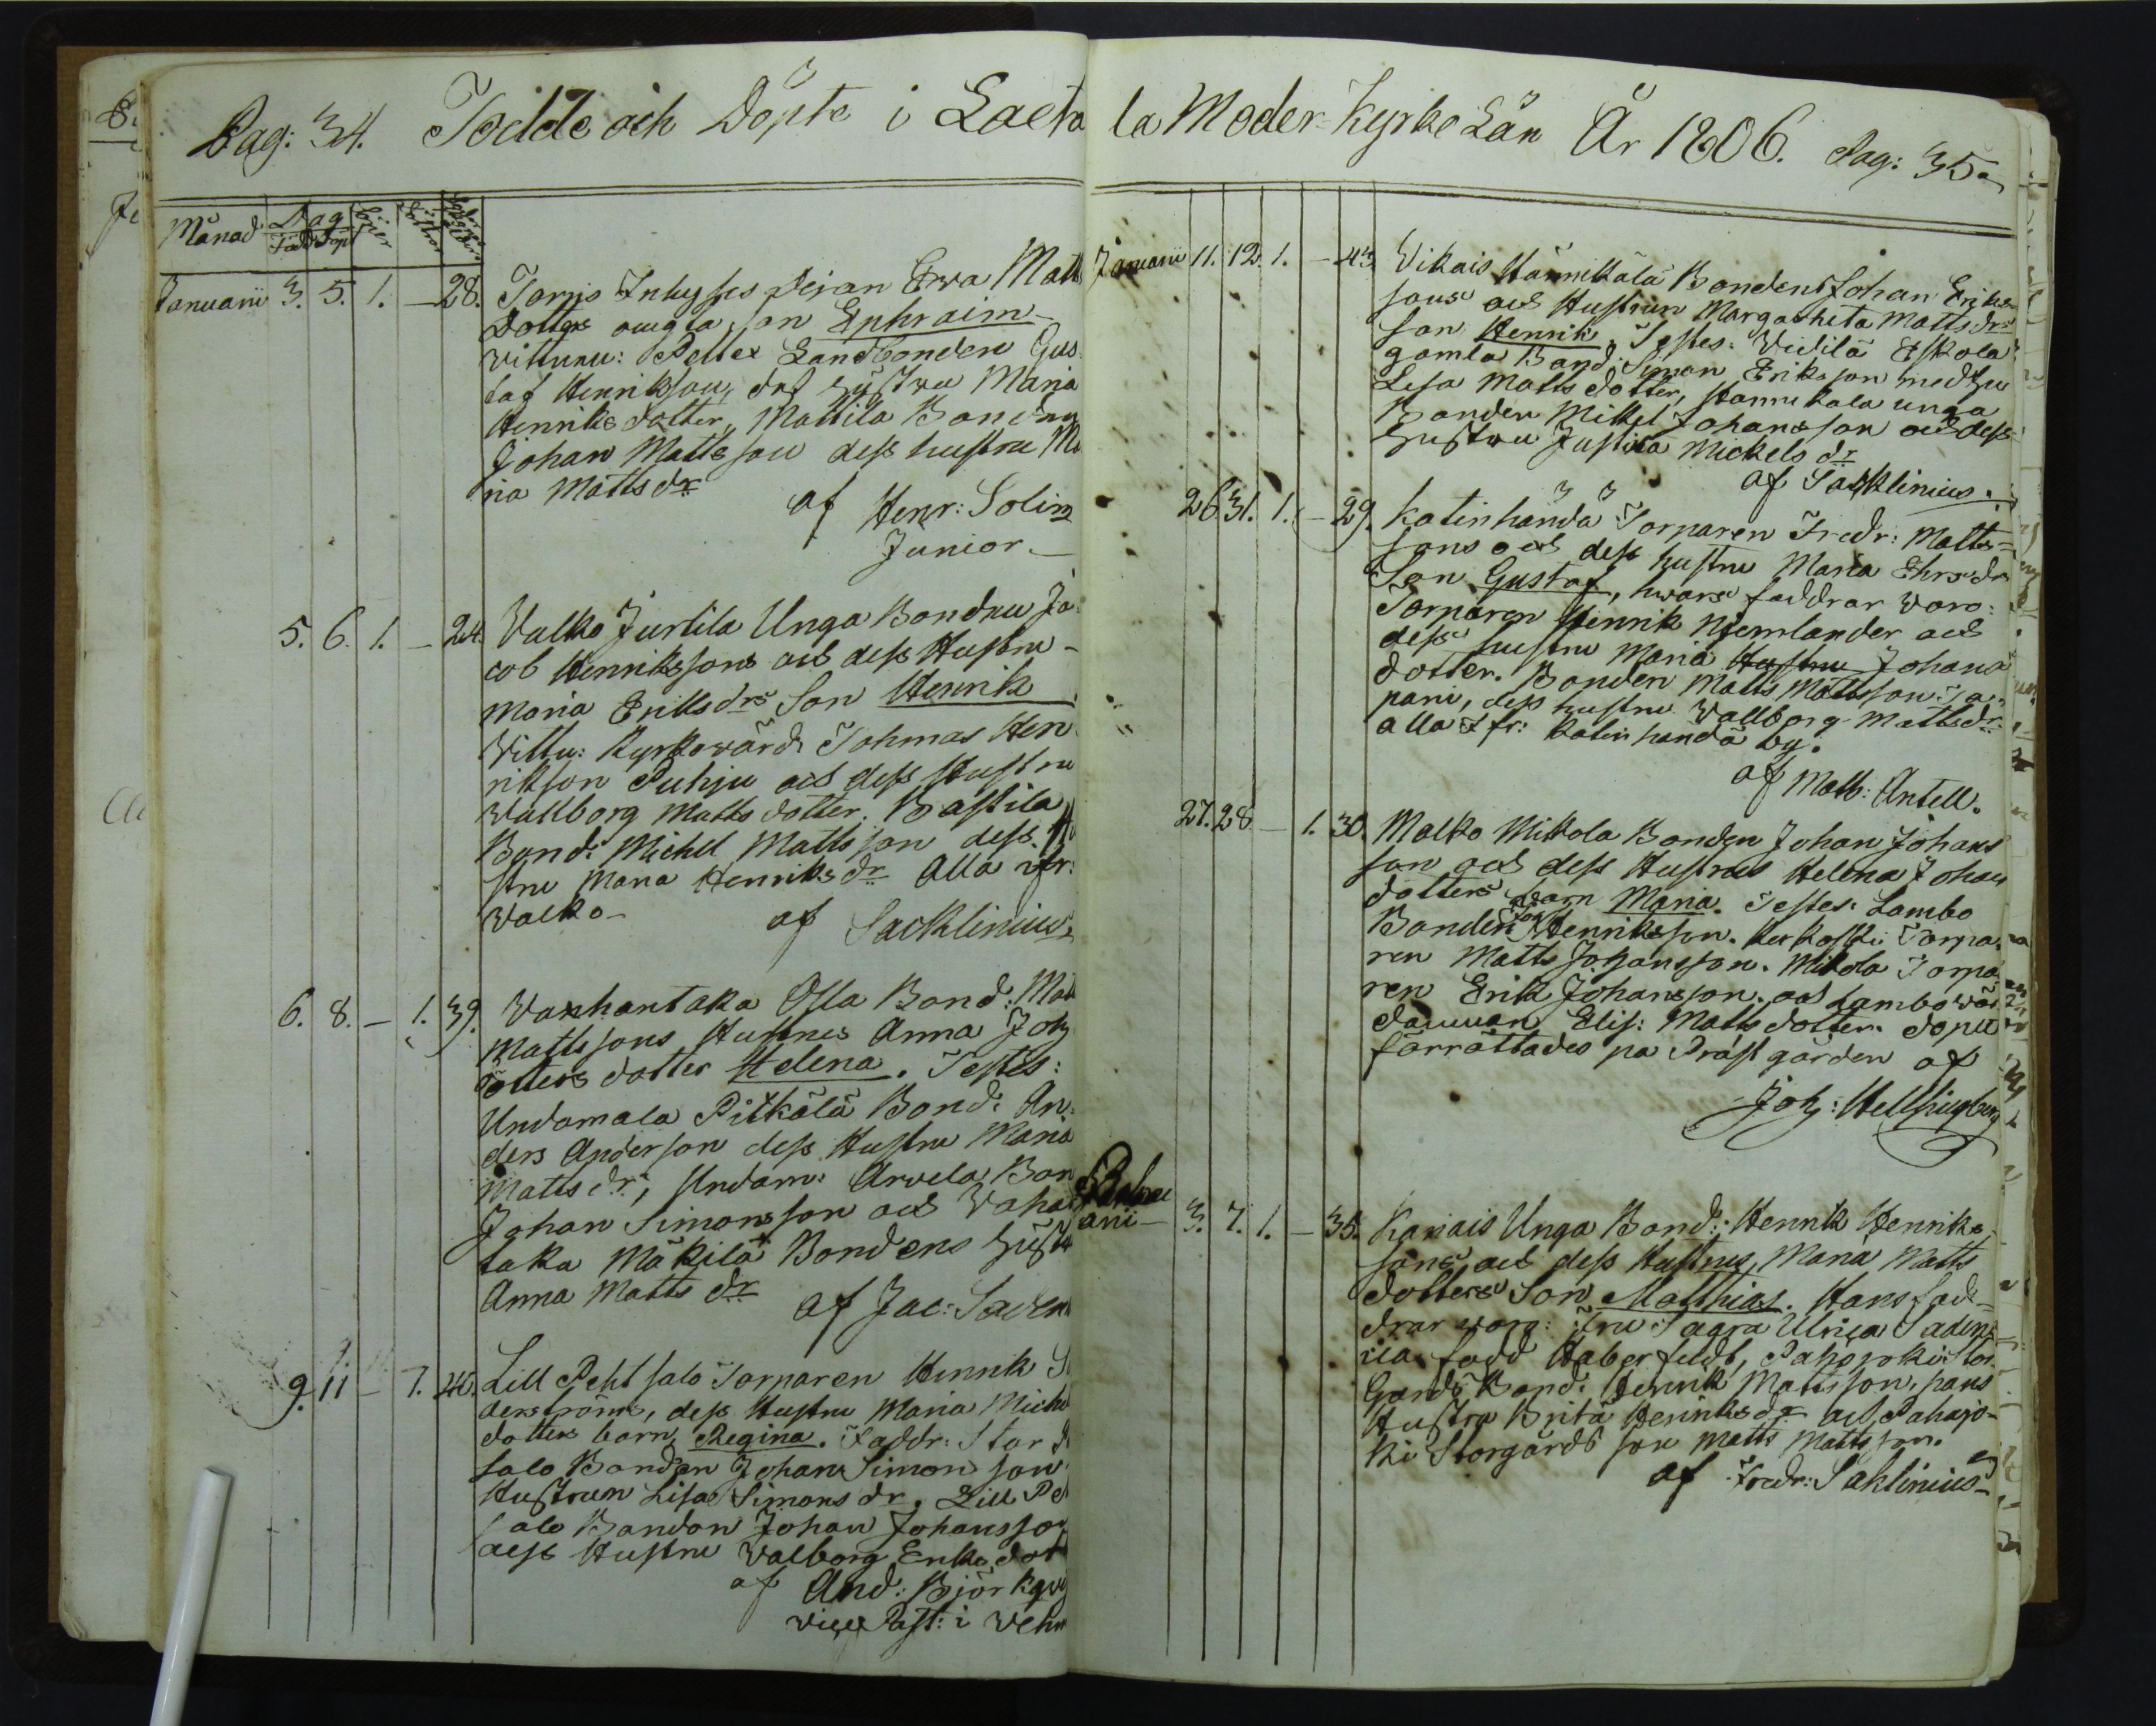 Pag: 34. Födde och Döpte i Laeta
Månad Dag Söner Döttrar
Född Döpt
Januarii 3. 5. 1. — 28. Pigan Ewa Matts
Dotters oäugta son Ephraim
Wittnen: Peltex Landbonden Gus-
taf Henriksson, des hustru Maria
Henriks dotter, Mattila Bonden
Johan Mattsson dess hustru Ma
ria Matts dr
af Henr: Solin
Junior
5. 6. 1. — 24. Valko Juntila Unga Bonden Ja-
cob Henrikssons och dess Hustru
Maria Eriks drs Son Henrik
Wittn: Kyrkowärd Tohmas Hen
rikson Puhju och dess Hustru
Wallborg Matts dotter. Bastila
Bond: Michel Mattsson dess Hu
stru Maria Henriks dr Alla ifr:
Walko
af Sacklinius
6. 8. — 1. 39. Vaxhantaka Olla Bond: Mat
Mattssons Hustrus Anna Joh
dotters dotter Helena. Testes:
Undamala Pitkälä Bond: An-
ders Anderson dess Hustru Maria
Matts dr, Undam: Arvela Bon
Johan Simonsson och Vaha
taka Mäkilä Bondens Hust
Anna Matts dr
af Jac: Saden
9. 11 — 1. 40. Lill Pehtsalo Torparen Henrik S
derströms, dess Hustru Maria Miche
dotters barn Regina. Faddr: Stor P
salo Bonden Johan Simonson
Hustrun Lisa Simons dr. Lill Pe
salo Bondon Johan Johansson
dess Hustru Valborg Eriks dot
af And: Björkqvi
vice Past: i Vehm
la Moder-Kyrko Län År 1806. Pag: 35.
Januarii 11. 12. 1. — 43. Vikais Hännikälä Bondens Johan Eriks-
sons och Hustrun Margaretha Matts drs
son Henrik. Testes: Vidilä Eskola
gamla Bond: Simon Eriksson med hu
Lisa Matts dotter, Hannikala unga
Bonden Mikkel Johansson och dess
Hustru Justina Mickels dr
af Sacklinius.
26. 31. 1. — 29. Katinhända Torparen Fredr: Matts-
sons och dess hustru Maria Ehrs drs
Son Gustaf, hwars faddrar woro:
Torparen Henrik Njemlander och
dess hustru Maria Hustru Johans
dotter. Bonden Matts Mattsson Ja
pani, dess hustru Wallborg Matts dr
alla ifr: Katinhända by.
af Math: Antell.
27. 28 — 1. 30. Malko Mikola Bonden Johan Johans
son och dess Hustrus Helena Johan
dotters barn Maria. Testes. Lambo
Bonden Henriksson. Torpa-
ren Matts Johansson. Mikola Torpa
ren Erik Johansson. och Lambo wär
dinnan Elis: Matts dotter. dopet
förrättades på Prästgården af
Joh: Hellsingberg
Februarii 3. 7. 1. — 35. Kariais Unga Bond: Henrik Henriks
sons och dess Hustrus Maria Matts
dotters Son Matthias. Hans fad-
drar woro: Fru Sagra Ulrica Sadeni
ua född Haberfeldt, Pahojoki Stor
Gards Bond: Henrik Mattsson, hans
Hustru Brita Henriks dr och Pahajo-
ki Storgårds son Matts Mattsson.
af Fredr: Saklinius